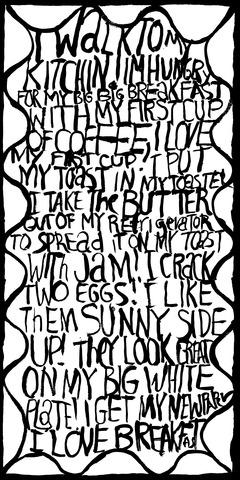 I WALK TO MY
KITCHIN I'M HUNGRY
FOR MY BIG BIG BREAKFAST
WITH MY FIRST CUP
OF COFFEE, I LOVE
MY FIRST CUP, I PUT
MY TOAST IN MY TOASTER
I TAKE The BUTTER
OUT OF MY ReFrigerator
TO SPReaD iT ON MY TOAST
WiTh JaM! I CRaCK
TWO EGGS! I LIKE
ThEM SUNNY SIDE
UP! ThEY LOOK GREAT
ON MY BIG WHITE
PlaTE! I GET MY NEWSPAPER
I LOVE BREAKFAST